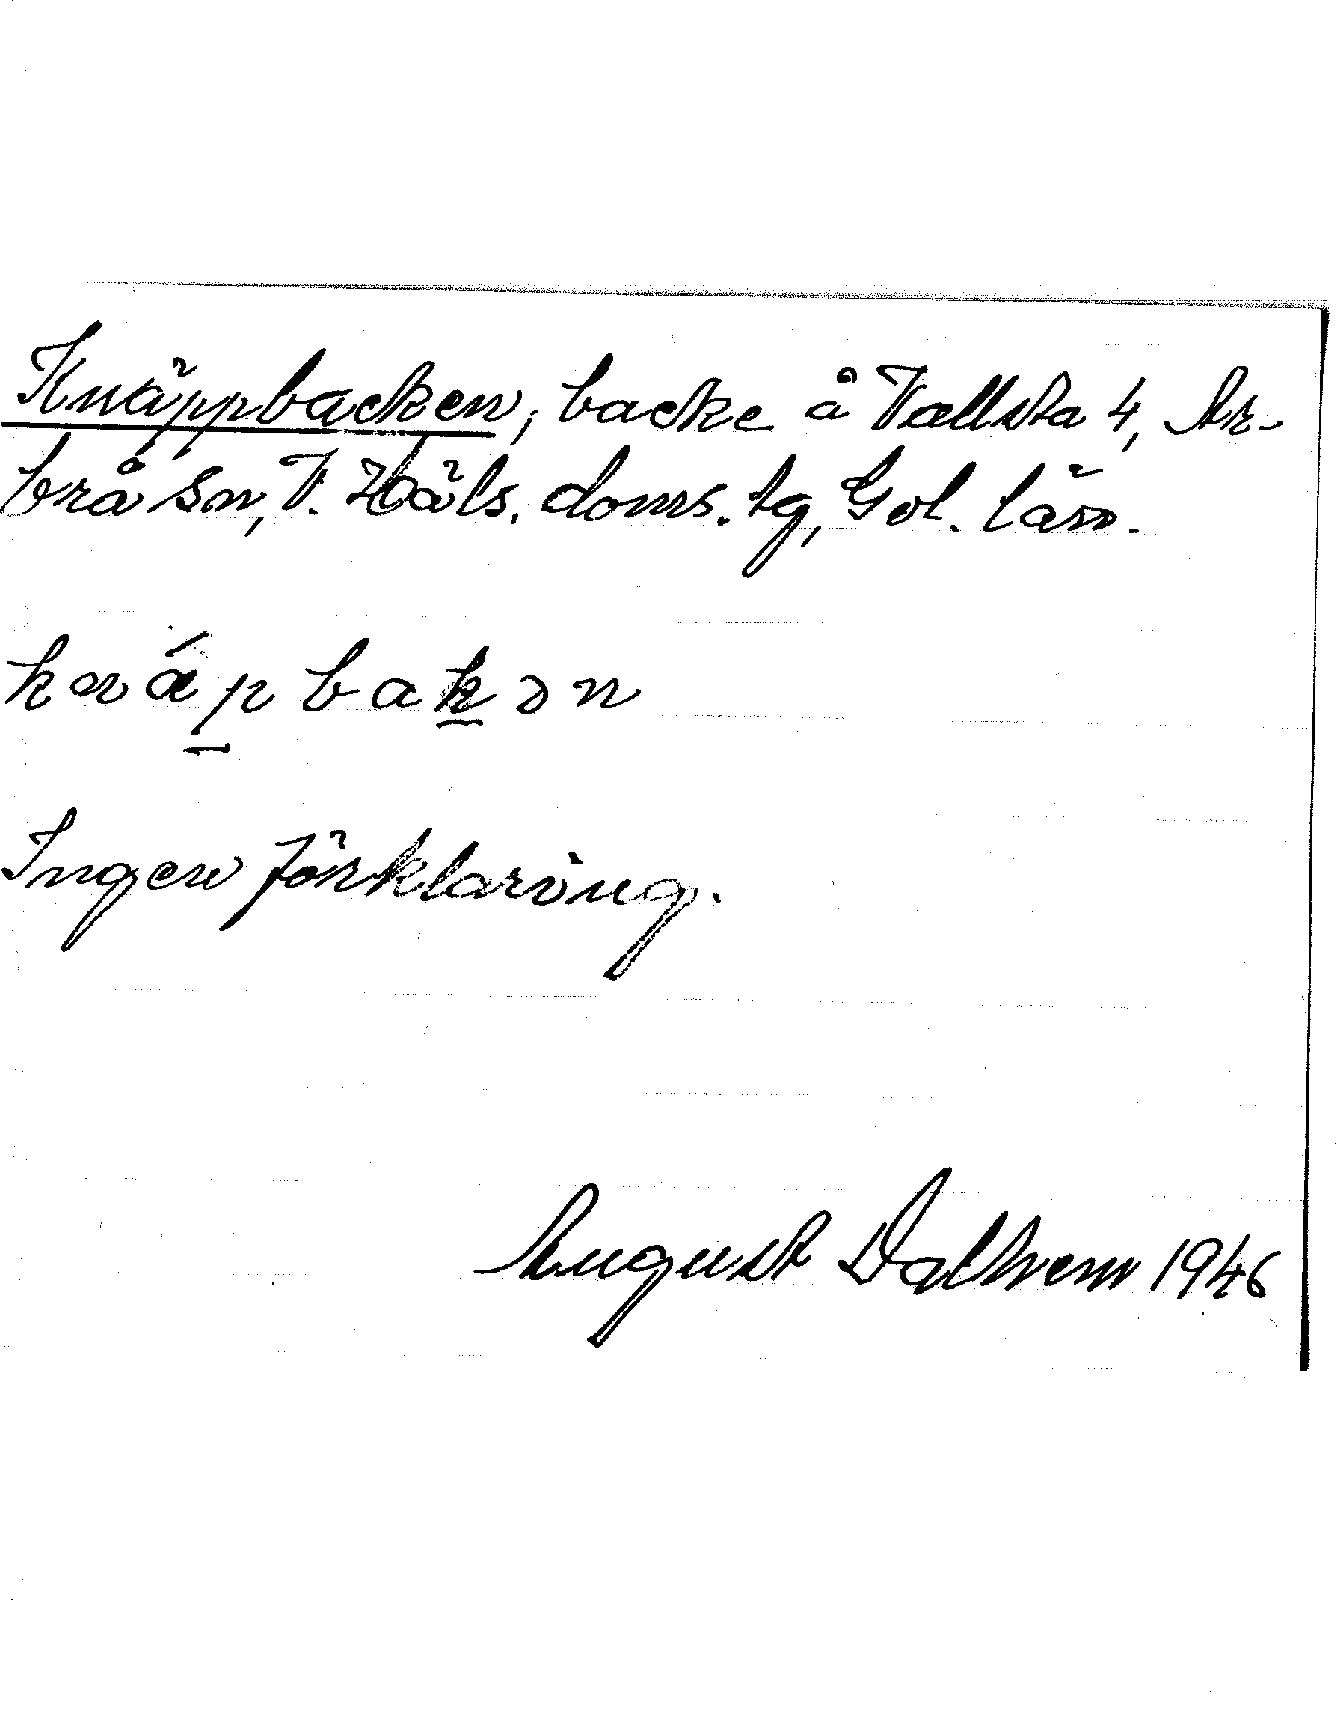 Knäppbacken, backe å Vallsta 4, Ar-
brå sn, V. Häls. doms. tg, Gvl. län.
knáp̲bak̲ən
Ingen förklaring.
August Dalhem 1946